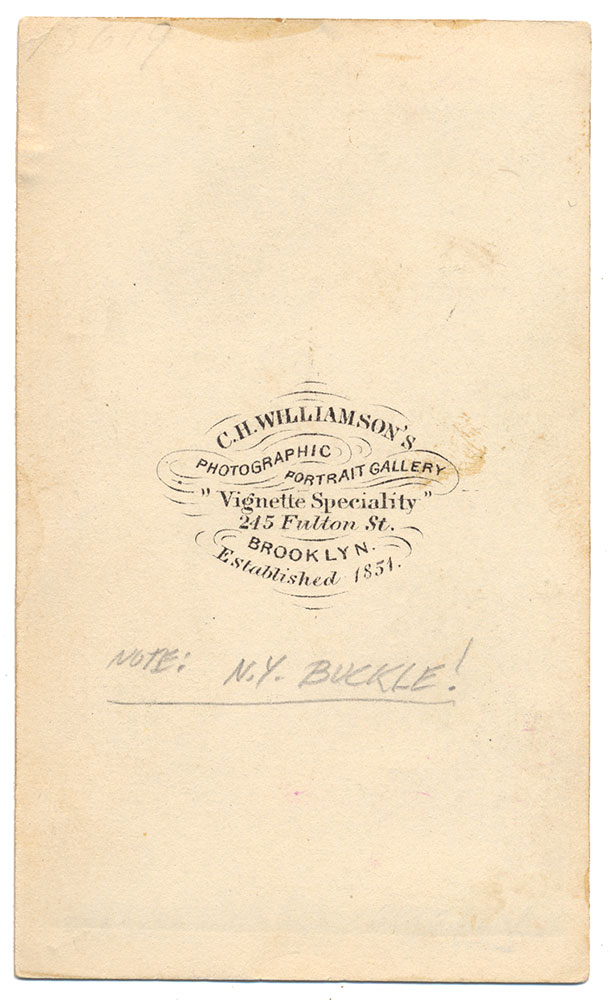 C.H. WILLIAMSON'S
PHOTOGRAPHIC
PORTRAIT GALLERY
"Vignette Speciality"
245 Fulton St.
BROOKLYN.
Established 1851.
NOTE: N.Y. BUCKLE!